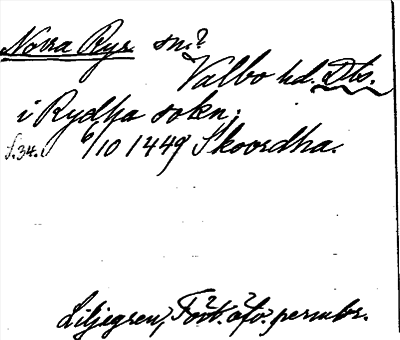 Norra Ryr. sn?
Valbo hd. Dls.
i Rydha sokn;
s.34. 6/10 1449 Skoordha.
Liljegren, Fört. öfv. permbr.